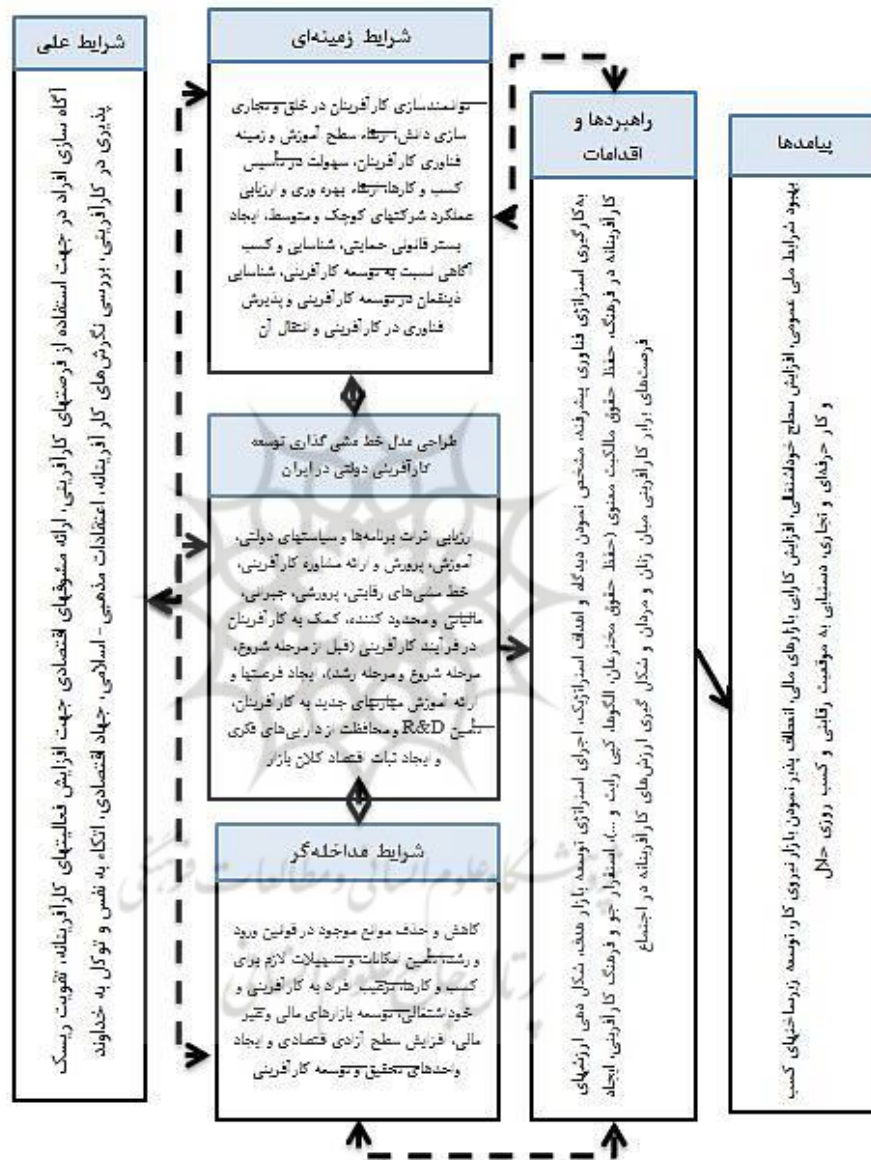 شرایط علی
آگاه سازی افراد در جهت استفاده از فرصتهای کارآفرینی، ارائه مشوقهای اقتصادی جهت افزایش فعالیتهای کارآفرینانه، تقویت ریسک
پذیری در کارآفرینی، بررسی نگرش‌های کارآفرینانه، اعتقادات مذهبی - اسلامی، جهاد اقتصادی، اتکاء به نفس و توکل به خداوند
شرایط زمینه‌ای
توانمندسازی کارآفرینان در خلق و تجاری
سازی دانش، ارتقاء سطح آموزش و زمینه
فناوری کارآفرینان، سهولت در تأسیس
کسب و کارها، ارتقاء بهره وری و ارزیابی
عملکرد شرکتهای کوچک و متوسط، ایجاد
بستر قانونی حمایتی، شناسایی و کسب
آگاهی نسبت به توسعه کارآفرینی، شناسایی
ذینفعان در توسعه کارآفرینی و پذیرش
فناوری در کارآفرینی و انتقال آن
طراحی مدل خط مشی گذاری توسعه
کارآفرینی دولتی در ایران
ارزیابی اثرات برنامه‌ها و سیاستهای دولتی،
آموزش، پرورش و ارائه مشاوره کارآفرینی،
خط مشی‌های رقابتی، پرورشی، جبرانی،
مالیاتی و محدود کننده، کمک به کارآفرینان
در فرآیند کارآفرینی (قبل از مرحله شروع،
مرحله شروع و مرحله رشد)، ایجاد فرصتها و
ارائه آموزش مهارتهای جدید به کارآفرینان،
تأمین R&D و محافظت از دارایی‌های فکری
و ایجاد ثبات اقتصاد کلان بازار
شرایط مداخله‌گر
کاهش و حذف موانع موجود در قوانین ورود
و رشد، تأمین امکانات و تسهیلات لازم برای
کسب و کارها، ترغیب افراد به کارآفرینی و
خوداشتغالی، توسعه بازارهای مالی و غیر
مالی، افزایش سطح آزادی اقتصادی و ایجاد
واحدهای تحقیق و توسعه کارآفرینی
راهبردها و
اقدامات
به‌کارگیری استراتژی فناوری پیشرفته، مشخص نمودن دیدگاه و اهداف استراتژیک، اجرای استراتژی توسعه بازار هدف، شکل دهی ارزشهای
کارآفرینانه در فرهنگ، حفظ حقوق مالکیت معنوی (حفظ حقوق مخترعان، الگوها، کپی رایت و ...)، استقرار جو و فرهنگ کارآفرینی، ایجاد
فرصت‌های برابر کارآفرینی میان زنان و مردان و شکل گیری ارزش‌های کارآفرینانه در اجتماع
پیامدها
بهبود شرایط ملی عمومی، افزایش سطح خوداشتغالی، افزایش کارایی بازارهای مالی، انعطاف پذیر نمودن بازار نیروی کار، توسعه زیرساختهای کسب
و کار حرفه‌ای و تجاری، دستیابی به موقعیت رقابتی و کسب روزی حلال
پژوهشگاه علوم انسانی و مطالعات فرهنگی
پرتال جامع علوم انسانی